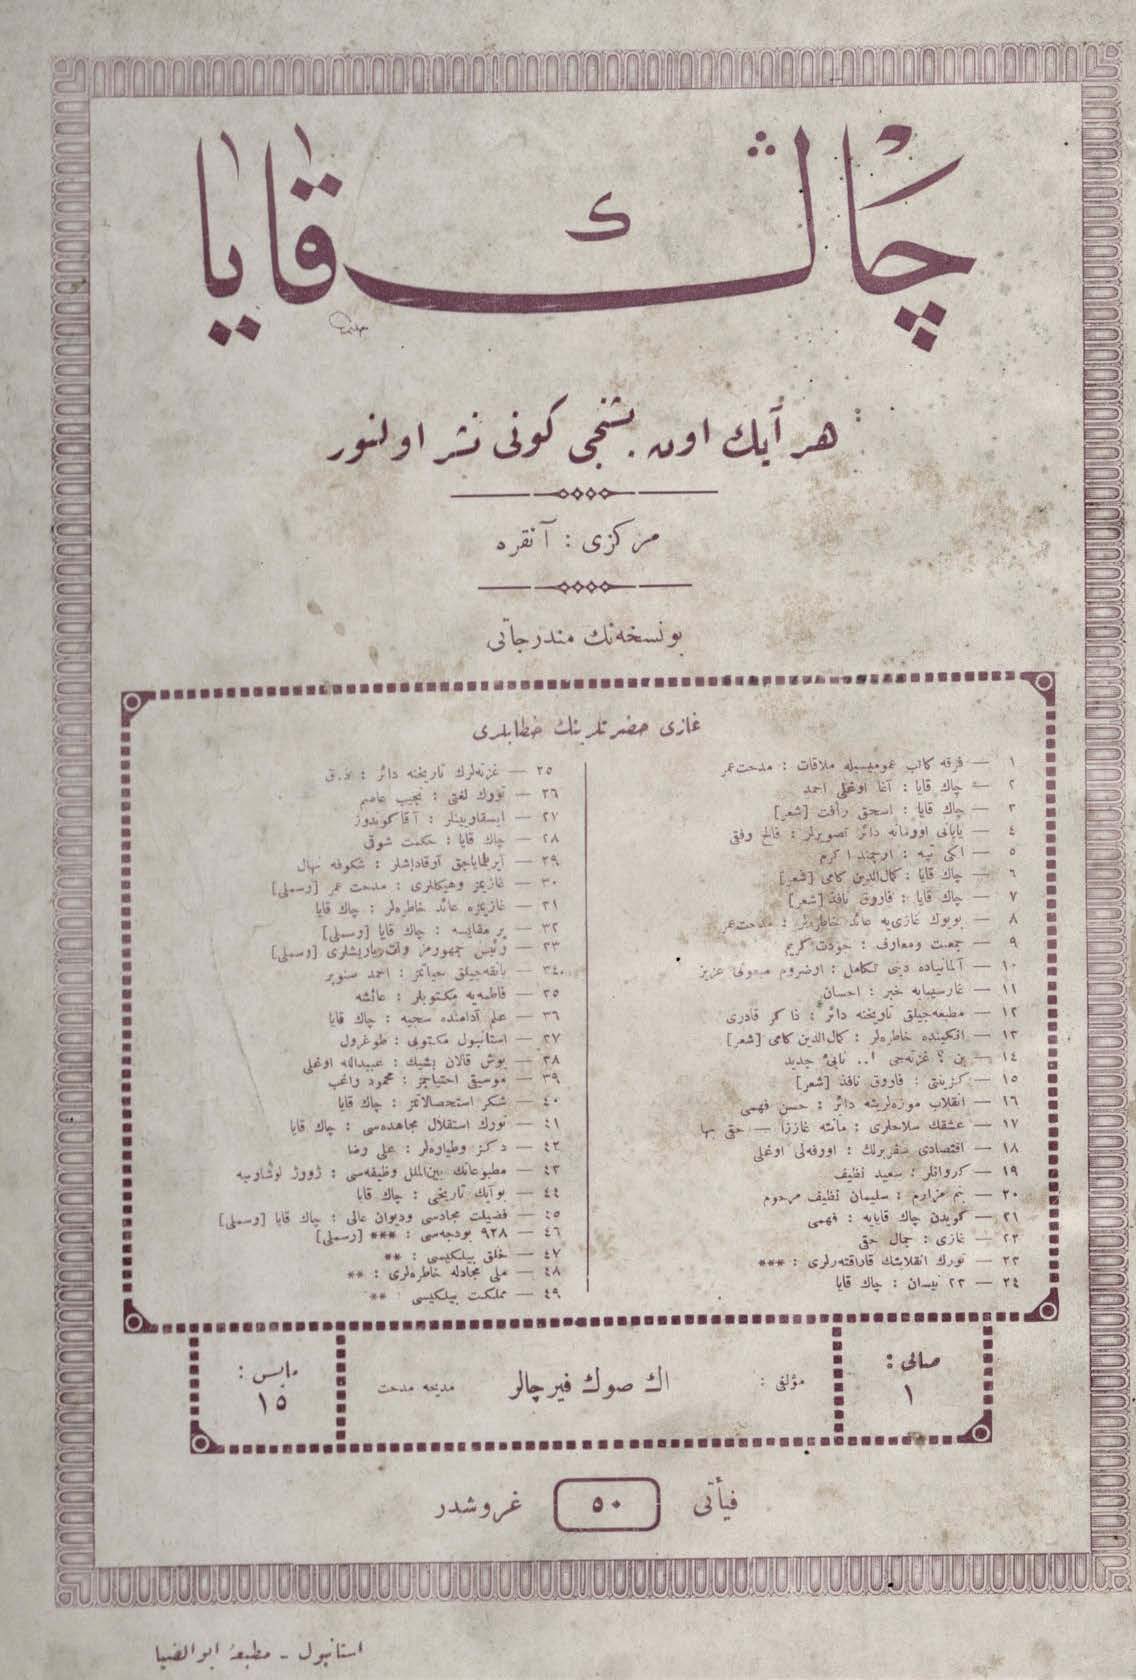 چاڭ قایا
هر آیك اون بشنجی كونی نشر اولنور
مركزی : آنقره
بو نسخه‌نك مندرجاتی
غازی حضرتلرینك خطابلری
١ — فرقه كاتب عمومیسیله ملاقات : مدحت عمر
٢ — چاڭ قایا : آغا اوغلی احمد
٣ — چاڭ قایا : اسحق رأفت [شعر]
٤ — یابانی اورمانه دائر تصویرلر : فالح رفقی
٥ — ایكی تپه : ارجمند اكرم
٦ — چاڭ قایا : كمال‌الدین كامی [شعر]
٧ — چاڭ قایا : فاروق نافذ [شعر]
٨ — بویوك غازی‌یه عائد خاطره‌لر : مدحت عمر
٩ — جمعیت ومعارف : جودت كریم
١٠ — آلمانیاده دینی تكامل : ارضروم مبعوثی عزیز
١١ — غارسیبایه خبر : احسان
١٢ — مطبعه‌جیلق تاریخنه دائر : ذاكر قادری
١٣ — افكینده خاطره‌لر : كمال‌الدین كامی [شعر]
١٤ — بن ؟ غزته‌جی !.. نابیٔ جدید
١٥ — كزینتی : فاروق نافذ [شعر]
١٦ — انقلاب موزه‌لرینه دائر : حسن فهمی
١٧ — عشقك سلاحلری : مانته غاززا — حقی بها
١٨ — اقتصادی سفربرلك : اورفه‌لی اوغلی
١٩ — كروانلر : سعید نظیف
٢٠ — بنم مزارم : سلیمان نظیف مرحوم
٢١ — كویدن چاڭ قایایه : فهمی
٢٢ — غازی : جمال حقی
٢٣ — تورك انقلابنك قاراقته‌رلری : ***
٢٤ — ٢٣ نیسان : چاڭ قایا
٢٥ — غزته‌لرك تاریخنه دائر :
٢٦ — تورك لغتی : نجیب عاصم
٢٧ — ایسقاویینلر : آقا كوندوز
٢٨ — چاڭ قایا : حكمت شوقی
٢٩ — آیریلمایاجق آرقاداشلر : شكوفه نهال
٣٠ — غازیمز وهیكللری : مدحت عمر [رسملی]
٣١ — غازیمزه عائد خاطره‌لر : چاڭ قایا
٣٢ — بر مقایسه : چاڭ قایا [رسملی]
٣٣ — رئیس جمهورمز ولت‌ویاریشلری [رسملی]
٣٤ — بانقه‌جیلق حیاتمز : احمد صنوبر
٣٥ — فاطمه‌یه مكتوبلر : عائشه
٣٦ — علم آدامنده سجیه : چاڭ قایا
٣٧ — استانبول مكتوبی : طوغرول
٣٨ — بوش قالان بشیك : عبیدالله اوغلی
٣٩ — موسیقی احتیاجمز : محمود راغب
٤٠ — شكر استحصالاتمز : چاڭ قایا
٤١ — تورك استقلال مجاهده‌سی : چاڭ قایا
٤٢ — دكز وطیاره‌لر : علی رضا
٤٣ — مطبوعاتك بین‌الملل وظیفه‌سی : ژورژ لوشاونیه
٤٤ — بو آیك تاریخی : چاڭ قایا
٤٥ — فضیلت مجادله‌سی ودیوان عالی : چاڭ قایا [رسملی]
٤٦ — ٩٢٨ بودجه‌سی : *** [رسملی]
٤٧ — خلق بیلكیسی : **
٤٨ — ملی مجادله خاطره‌لری : **
٤٩ — مملكت بیلكیسی : **
صالی : ١
مؤلفی : اك صوك فیرچالر مدیحه مدحت
مایس : ١٥
فیأتی ٥٠ غروشدر
استانبول ـ مطبعهٔ ابوالضیا